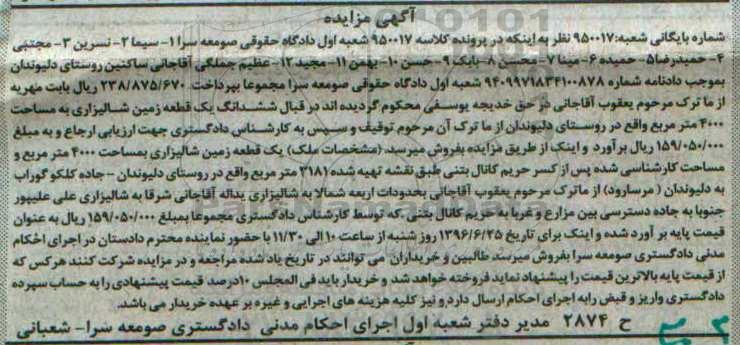 آگهی مزایده
شماره بایگانی شعبه: ۹۵۰۰۱۷ نظر به اینکه در پرونده کلاسه ۹۵۰۰۱۷ شعبه اول دادگاه حقوقی صومعه سرا ۱- سیما ۲- نسرین ۳- مجتبی
۴- حمیدرضا ۵- حمیده ۶- مینا ۷- محسن ۸- بابک ۹- حسن ۱۰- بهمن ۱۱- مجید ۱۲- عظیم جملگی آقاجانی ساکنین روستای دلیوندان
بموجب دادنامه شماره ۹۴۰۹۹۷۱۸۳۴۱۰۰۸۷۸ شعبه اول دادگاه حقوقی صومعه سرا مجموعا بپرداخت ۲۳۸/۸۷۵/۶۷۰ ریال بابت مهریه
از ما ترک مرحوم یعقوب آقاجانی در حق خدیجه یوسفی محکوم گردیده اند در قبال ششدانگ یک قطعه زمین شالیزاری به مساحت
۴۰۰۰ متر مربع واقع در روستای دلیوندان از ما ترک آن مرحوم توقیف و سپس به کارشناس دادگستری جهت ارزیابی ارجاع و به مبلغ
۱۵۹/۰۵۰/۰۰۰ ریال برآورد و اینک از طریق مزایده بفروش میرسد. (مشخصات ملک) یک قطعه زمین شالیزاری بمساحت ۴۰۰۰ متر مربع و
مساحت کارشناسی شده پس از کسر حریم کانال بتنی طبق نقشه تهیه شده ۳۱۸۱ متر مربع واقع در روستای دلیوندان - جاده کلکو گوراب
به دلیوندان (مرسارود) از ماترک مرحوم یعقوب آقاجانی بحدودات اربعه شمالا به شالیزاری یداله آقاجانی شرقا به شالیزاری علی علیپور
جنوبا به جاده دسترسی بین مزارع و غربا به حریم کانال بتنی .که توسط کارشناس دادگستری مجموعا بمبلغ ۱۵۹/۰۵۰/۰۰۰ ریال به عنوان
قیمت پایه بر آورد شده و اینک برای تاریخ ۱۳۹۶/۶/۲۵ روز شنبه از ساعت ۱۰ الی ۱۱/۳۰ با حضور نماینده محترم دادستان در اجرای احکام
مدنی دادگستری صومعه سرا بفروش میرسد طالبین و خریداران می توانند در تاریخ یاد شده مراجعه و در مزایده شرکت کنند هرکس که
از قیمت پایه بالاترین قیمت را پیشنهاد نماید فروخته خواهد شد و خریدار باید فی المجلس ۱۰درصد قیمت پیشنهادی را به حساب سپرده
دادگستری واریز و قبض را به اجرای احکام ارسال دارد و نیز کلیه هزینه های اجرایی و غیره بر عهده خریدار می باشد.
ح ۲۸۷۴ مدیر دفتر شعبه اول اجرای احکام مدنی دادگستری صومعه سرا - شعبانی